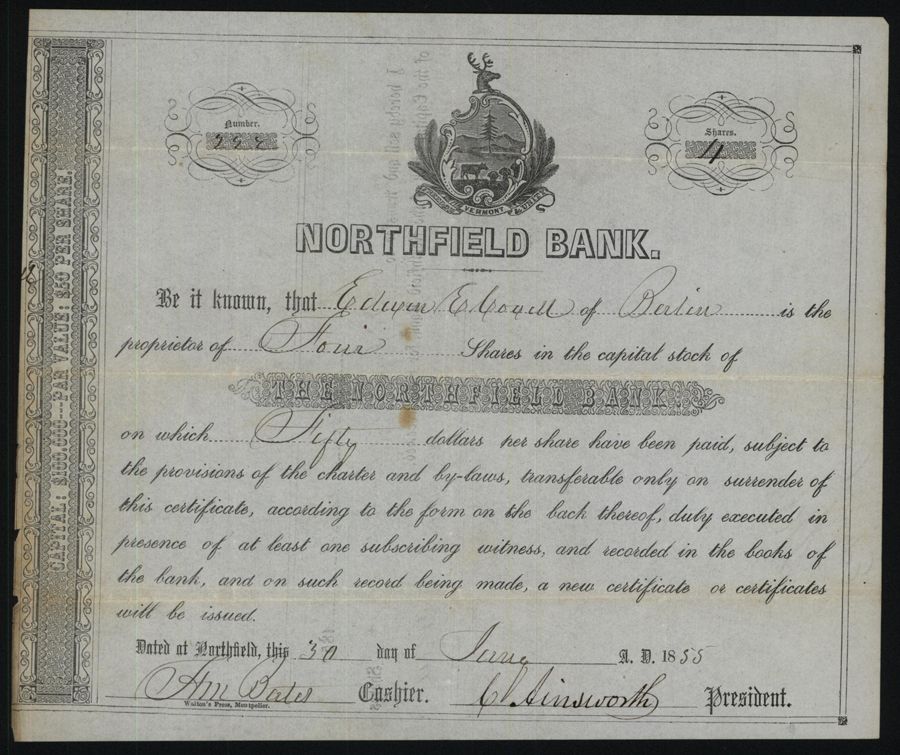 Number.
222
Shares.
4
VERMONT
& UNITY
NORTHFIELD BANK.
Be it known, that Edwin E Cogell of Berlin is the
proprietor of Four Shares in the capital stock of
THE NORTHFIELD BANK
on which Fifty dollars per share have been paid, subject to
the provisions of the charter and by-laws, transferable only on surrender of
this certificate, according to the form on the back thereof, duly executed in
presence of at least one subscribing witness, and recorded in the books of
the bank, and on such record being made, a new certificate or certificates
will be issued.
Dated at Northfield, this 30 day of A. D. 1855
Bates Cashier. C Ainsworth President.
Walton's Press, Montpelier.
CAPITAL: $100,000---PAR VALUE: $50 PER SHARE.